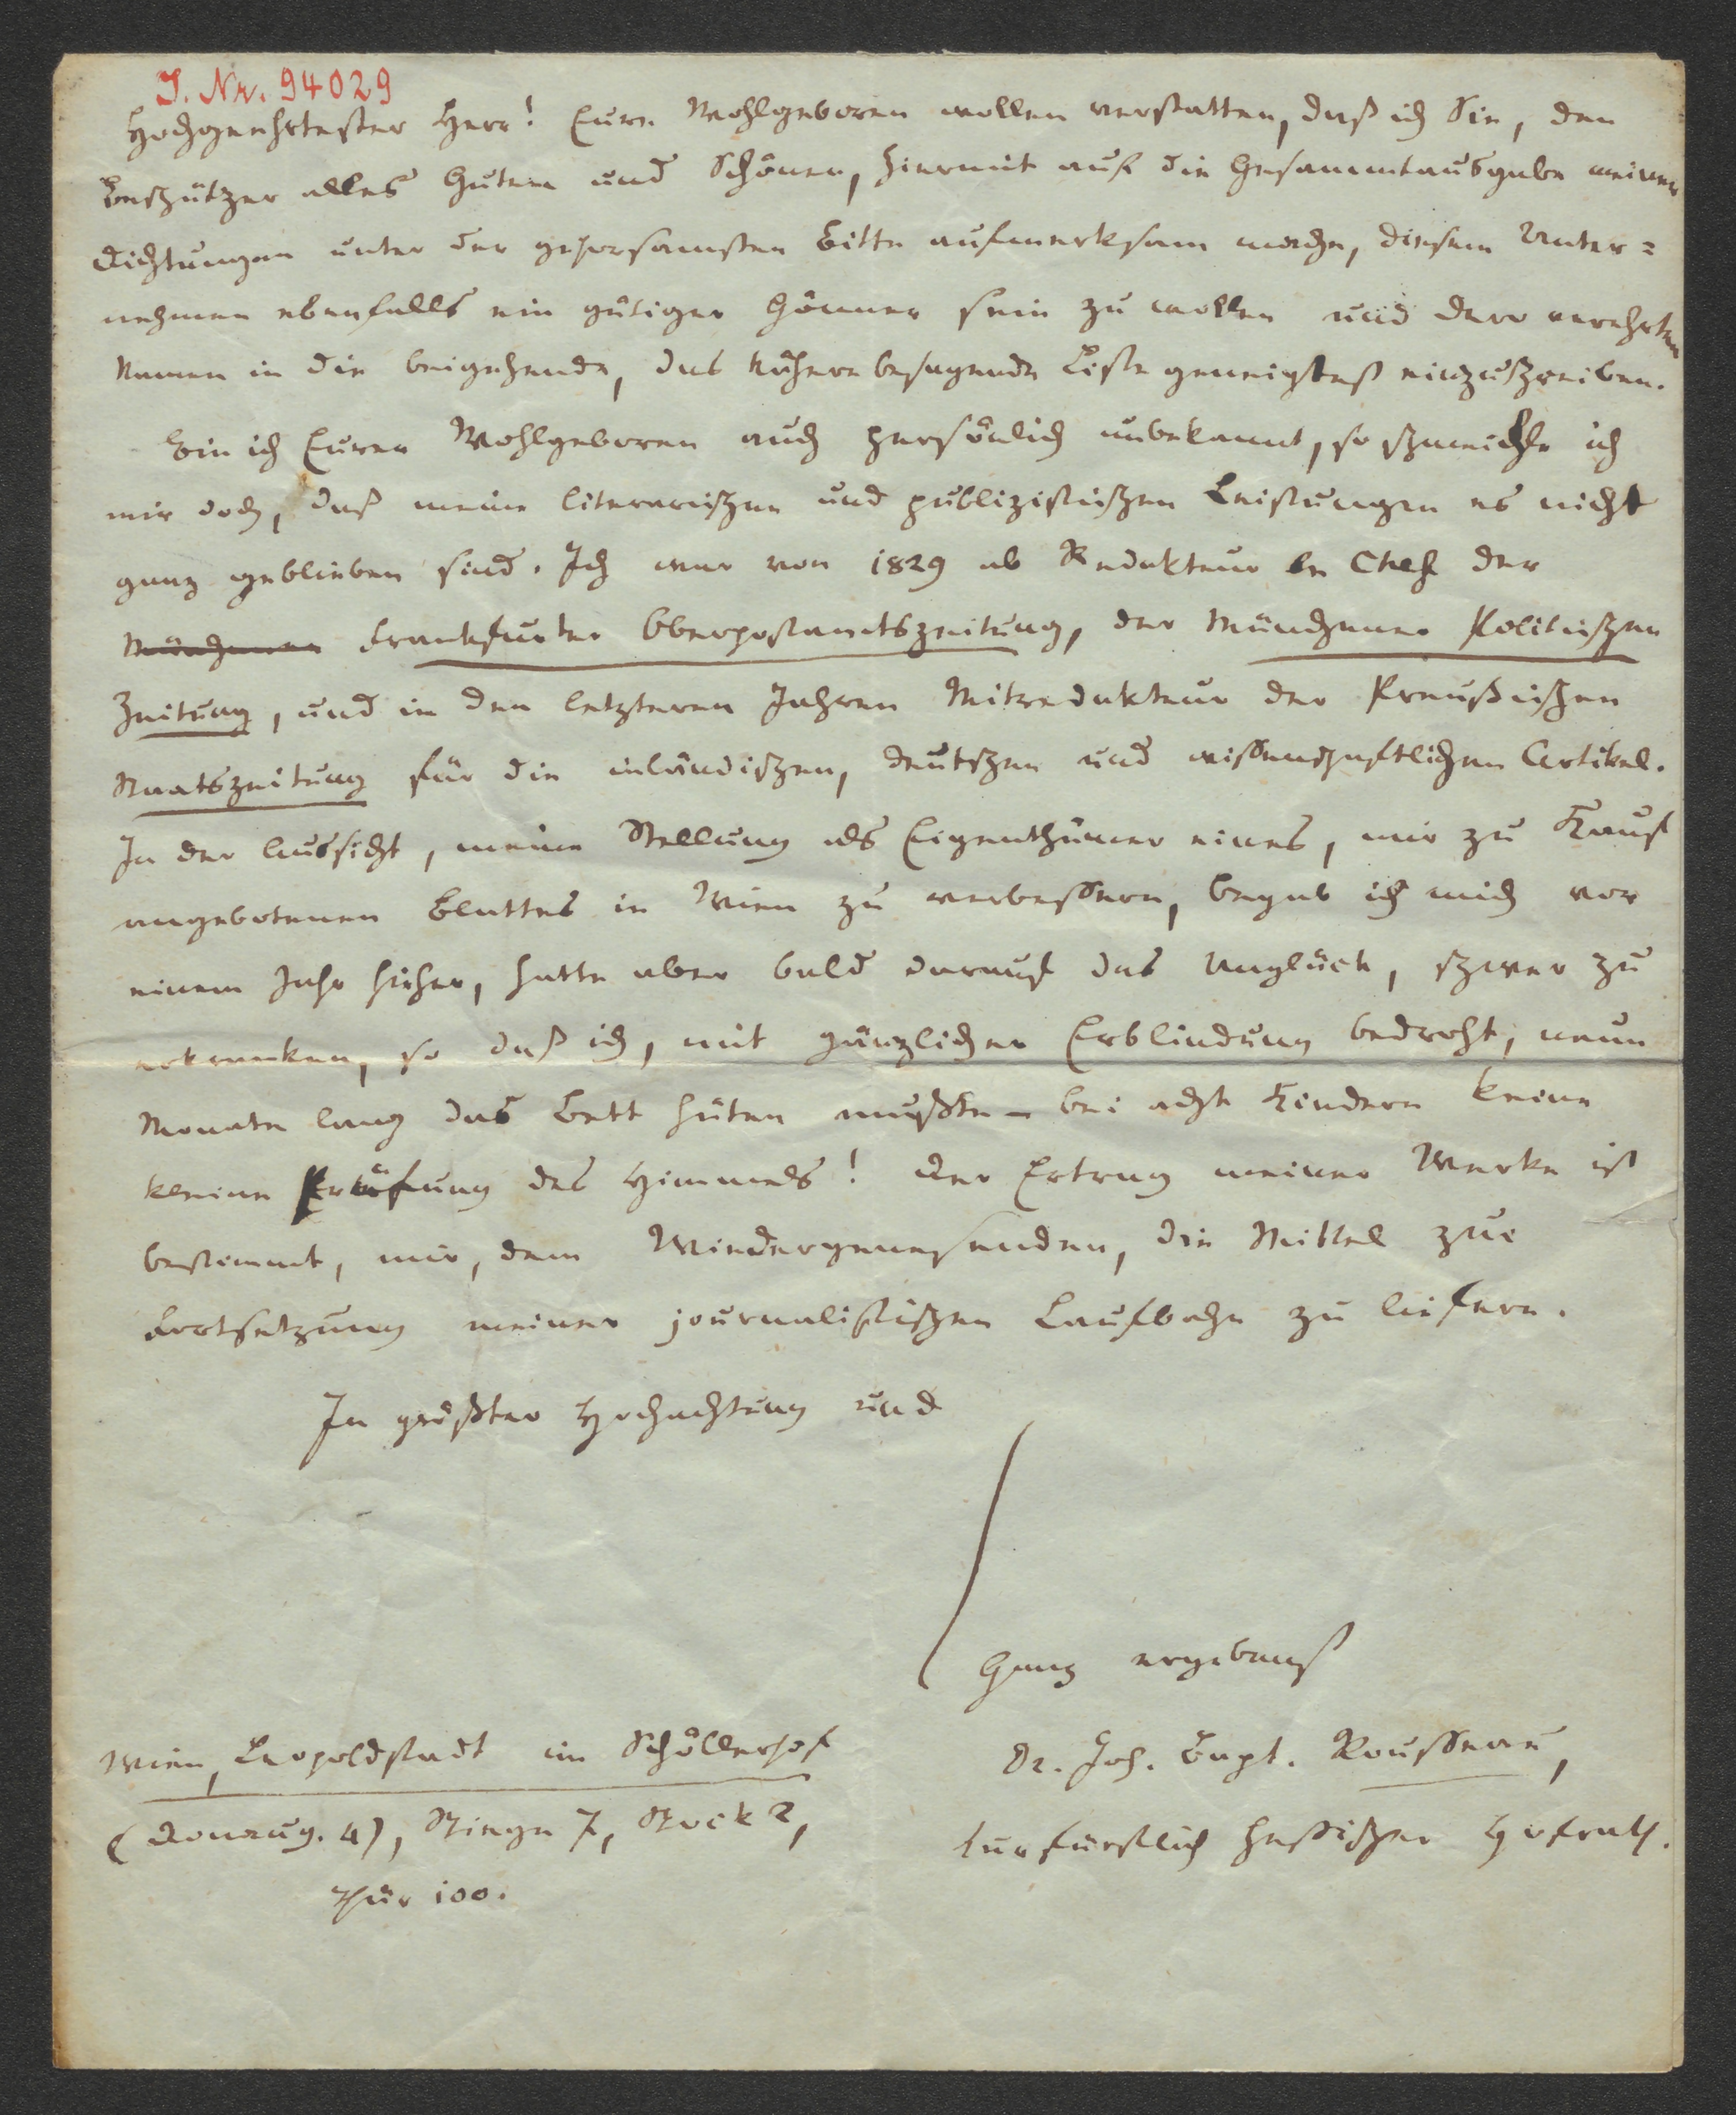 I. Nr. 94029
Hochgeehrtester Herr! Eure Wohlgeboren wollen verstatten, daß ich Sie, den
Beschützer alles Guten und Schönen, hiermit auf die Gesammtausgabe meiner
Dichtungen unter der gehorsamsten Bitte aufmerksam mache, diesem Unter=
nehmen ebenfalls ein gütiger Gönner sein zu wollen und dero verehrten
Namen in die beigehende, das Nähere besagende Liste geneigtest einzuschreiben.
Bin ich Euren Wohlgeboren auch persönlich unbekannt, so schmeichle ich
mir doch, daß meine literarischen und publizistischen Leistungen es nicht
ganz geblieben sind. Ich war von 1829 ab Redakteur en Chef der
Münchener Frankfurter Oberpostamtszeitung, der Münchener Politischen
Zeitung, und in den letzteren Jahren Mitredakteur der Preußischen
Staatszeitung für die inländischen, deutschen und wissenschaftlichen Artikel.
In der Aussicht, meine Stellung als Eigenthümer eines, mir zu Kauf
angebotenen Blattes in Wien zu verbessern, begab ich mich vor
einem Jahr hieher, hatte aber bald darauf das Unglück, schwer zu
erkranken, so daß ich, mit gänzlicher Erblindung bedroht, neun
Monate lang das Bett hüten mußte – bei acht Kindern keine
kleine Prüfung des Himmels! Der Ertrag meiner Werke ist
bestimmt, mir, dem Wiedergenesenden, die Mittel zur
Fortsetzung meiner journalistischen Laufbahn zu liefern.
In größter Hochachtung und
Ganz ergebenst
Dr. Joh. Bapt. Rousseau,
kurfürstlich hessischer Hofrath.
Wien, Leopoldstadt im Schöllerhof
(Donaug. 4), Stiege 7, Stock 2,
Thür 100.